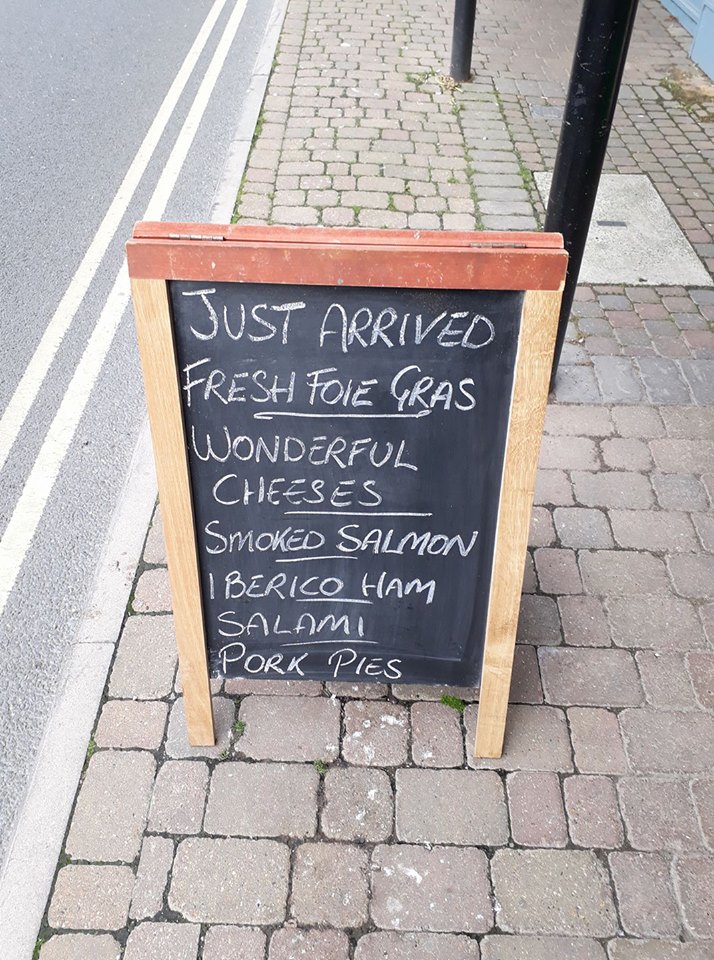 JUST ARRIVED
FRESH FOIE GRAS
WONDERFUL
CHEESES
SMOKED SALMON
IBERICO HAM
SALAMI
PORK PIES